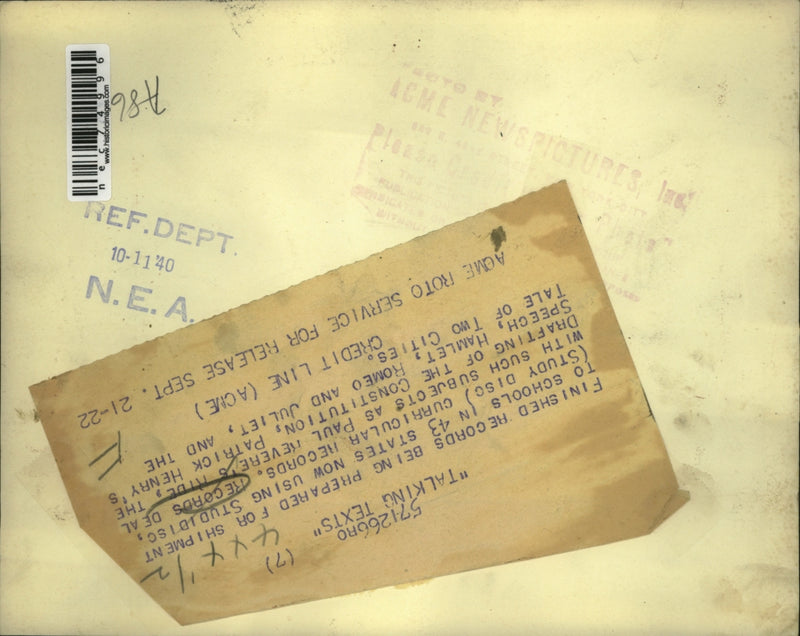 nec74996
www.historicimages.com
A86
PHOTO BY
ACME NEWSPICTURES, Inc.
REF.DEPT.
10-11'40
N.E.A.
4 x 4 1/2
(7)
571266RO
"TALKING TEXTS"
FINISHED RECORDS BEING PREPARED FOR SHIPMENT
TO SCHOOLS IN 43 STATES NOW USING STUDIDISC,
(STUDY DISC) CURRICULAR RECORDS. RECORDS DEAL
WITH SUCH SUBJECTS AS PAUL REVERE'S RIDE, THE
DRAFTING OF THE CONSTITUTION, PATRICK HENRY'S
SPEECH, HAMLET, ROMEO AND JULIET, AND THE
TALE OF TWO CITIES.
CREDIT LINE (ACME)
ACME ROTO SERVICE FOR RELEASE SEPT. 21-22